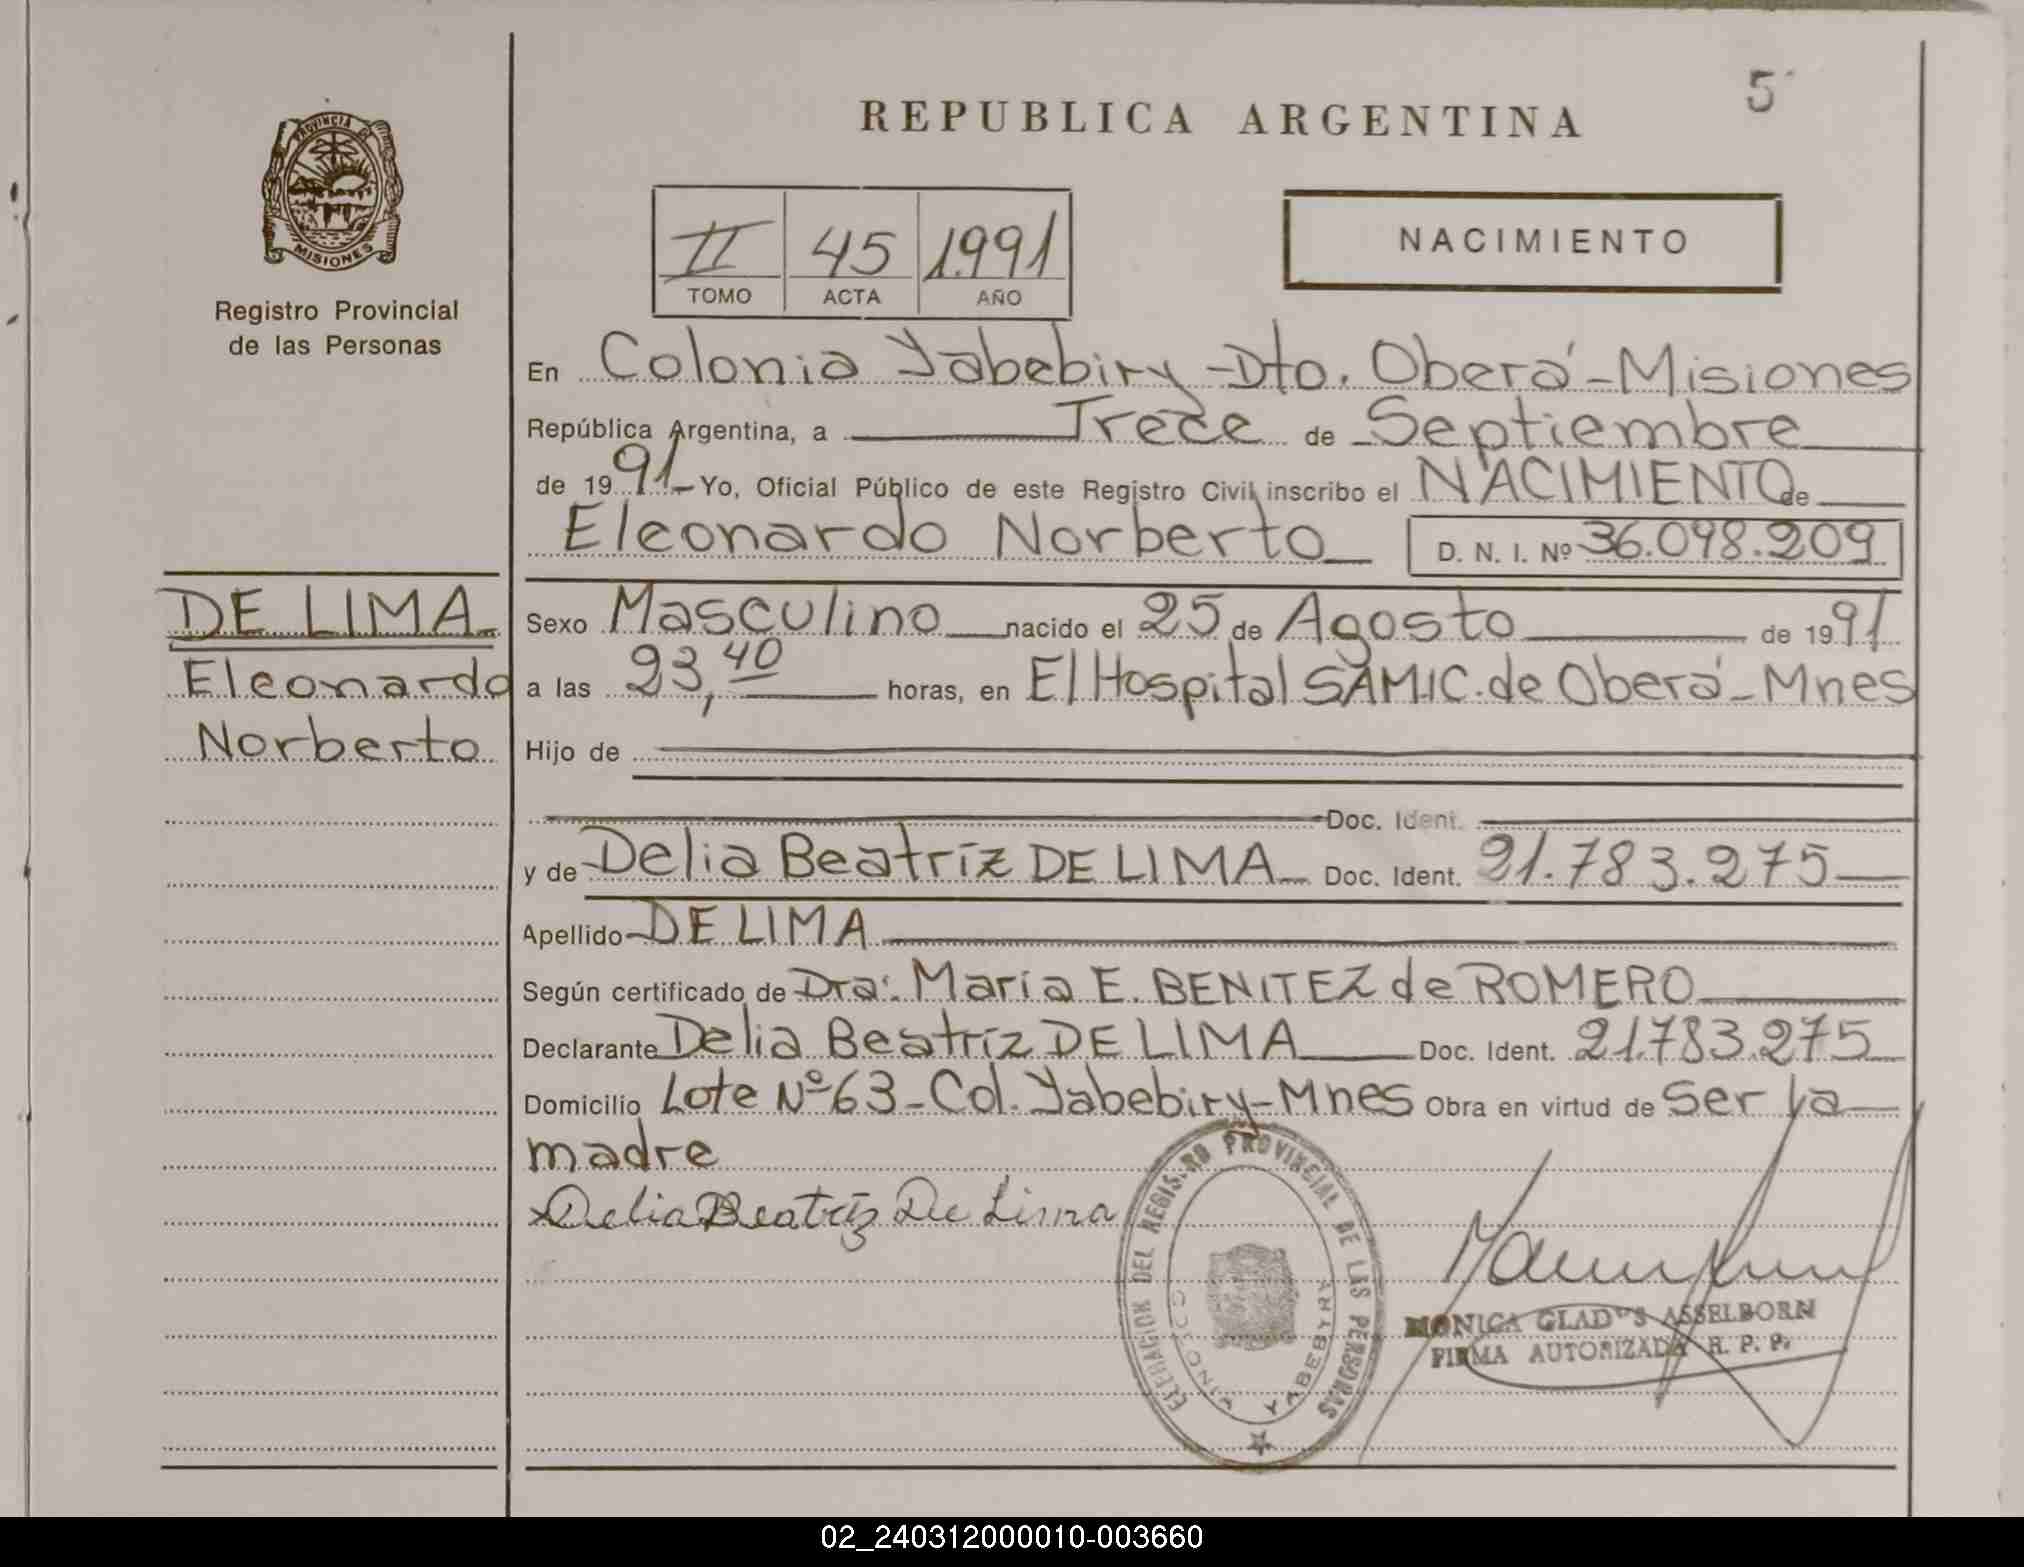 5
REPUBLICA ARGENTINA
PROVINCIA DE
MISIONES
Registro Provincial
de las Personas
II 45 1.991
TOMO ACTA AÑO
NACIMIENTO
En Colonia Yabebiry - Dto. Oberá - Misiones
República Argentina, a Trece de Septiembre
de 19 91 Yo, Oficial Público de este Registro Civil inscribo el NACIMIENTO de
Eleonardo Norberto D. N. I. Nº 36.098.209
DE LIMA
Eleonardo
Norberto
Sexo Masculino nacido el 25 de Agosto de 19 91
a las 23,40 horas, en El Hospital SAMIC. de Oberá - Mnes
Hijo de
Doc. Ident.
y de Delia Beatríz DE LIMA Doc. Ident. 21.783.275
Apellido DE LIMA
Según certificado de Dra: María E. BENITEZ de ROMERO
Declarante Delia Beatríz DE LIMA Doc. Ident. 21.783.275
Domicilio Lote Nº 63 - Col. Yabebiry - Mnes Obra en virtud de ser la
madre
Delia Beatríz De Lima
DEL REGISTRO PROVINCIAL DE LAS PERSONAS
COLONIA YABEBIRY
MONICA GLADYS ASSELBORN
FIRMA AUTORIZADA R. P. P.
02_240312000010-003660